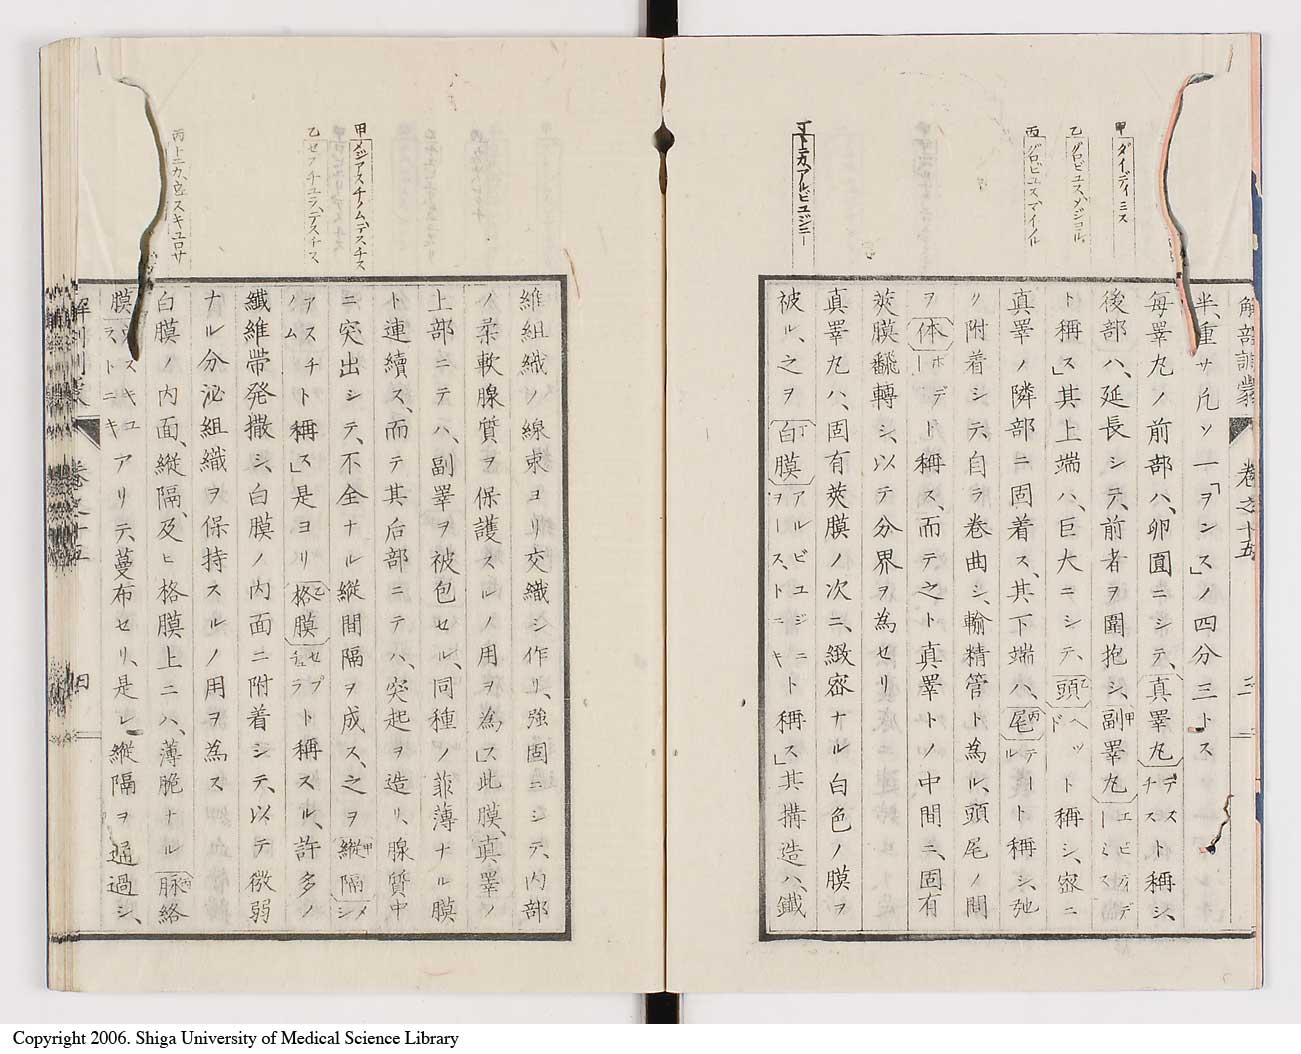 甲ダイディミス
乙グロビュスメジョル
丙グロビュスマイノル
丁トニカ、アルビュジニー
解剖訓蒙　巻之十五
半、重サ凡ソ一「ヲンス」ノ四分三トス
毎睪丸ノ前部ハ、卵圓ニシテ、真睪丸デスチストト稱シ、
後部ハ、延長シテ、前者ヲ圍抱シ、副睪丸甲エピディデーミス
ト稱ス」其上端ハ、巨大ニシテ、頭乙ヘッドト稱シ、密ニ
真睪ノ隣部ニ固着ス、其下端ハ、尾丙テールト稱シ、弛
リ附着シテ、自ラ巻曲シ、輸精管ト為ル、頭尾ノ間
ヲ体ボデートト稱ス、而テ之ト真睪トノ中間ニ、固有
莢膜飜轉シ、以テ分界ヲ為セリ
真睪丸ハ、固有莢膜ノ次ニ、緻密ナル白色ノ膜ヲ
被ル、之ヲ白膜丁アルビュジニヲース、トニキト稱ス」其搆造ハ、纎
甲メジアスチノム、デスチス
乙セプチュラ、デスチス
丙トニカ、バスキュロサ
維組織ノ線束ヨリ交織シ作リ、強固ニシテ、内部
ノ柔軟腺質ヲ保護スルノ用ヲ為ス」此膜、真睪ノ
上部ニテハ、副睪ヲ被包セル、同種ノ菲薄ナル膜
ト連續ス、而テ其后部ニテハ、突起ヲ造リ、腺質中
ニ突出シテ、不全ナル縦間隔ヲ成ス、之ヲ縦隔甲メジ
アスチノムト稱ス」是ヨリ格膜乙セプチュラト稱スル、許多ノ
纖維帯発撒シ、白膜ノ内面ニ附着シテ、以テ微弱
ナル分泌組織ヲ保持スルノ用ヲ為ス
白膜ノ内面、縦隔、及ヒ格膜上ニハ、薄脆ナル脉絡
膜丙バスキュラストニキアリテ、蔓布セリ、是レ縦隔ヲ通過シ、
解剖訓蒙　巻之十五　四